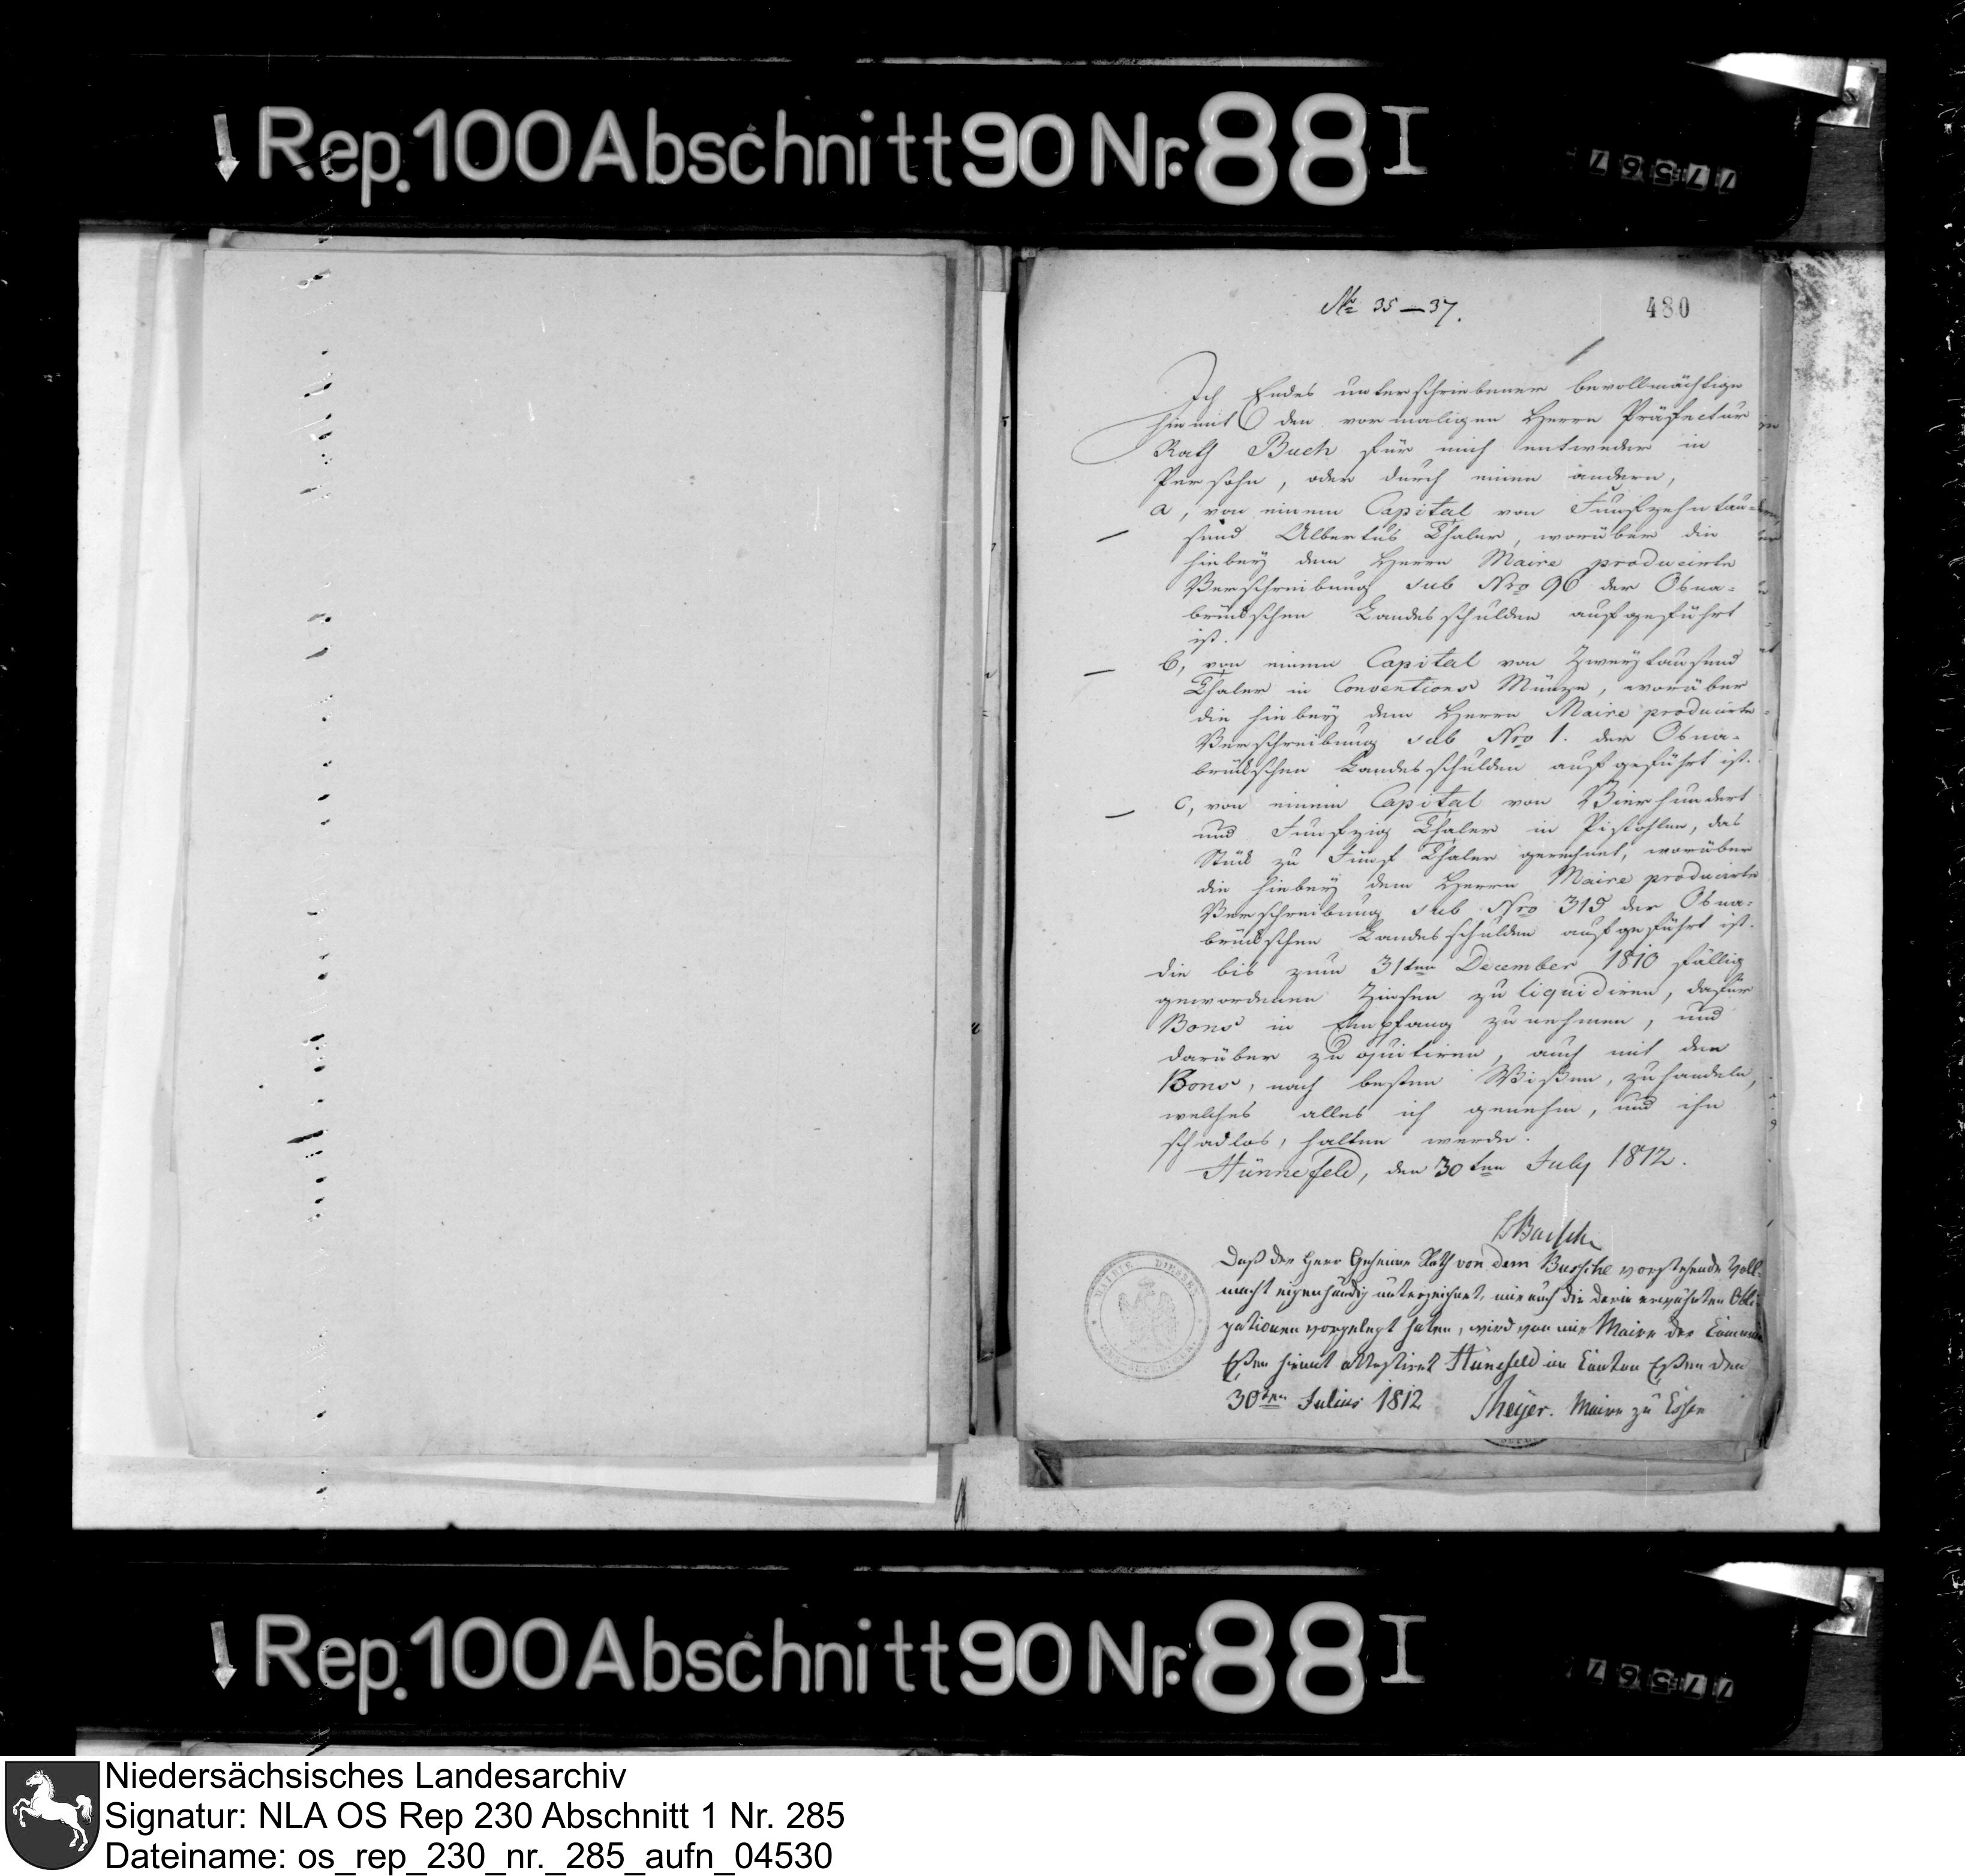 Rep. 100 Abschnitt 90 Nr. 88 I
77567
No 35 — 37.
480
Ich Endes unterschriebener bevollmächtige
hiemit den vormaligen Herrn Präfectur
Rath Buch für mich entweder in
Persohn, oder durch einen andern,
a, von einem Capital von Funfzehntau-
send Albertus Thaler, worüber die
hiebey dem Herrn Maire producirte
Verschreibung sub Nro 96 der Osna-
brückschen Landesschulden aufgeführt
ist.
b, von einem Capital von Zweytausend
Thaler in Conventions Münze, worüber
die hiebey dem Herrn Maire producirte
Verschreibung sub Nro 1. der Osna-
brückschen Landesschulden aufgeführt ist.
c, von einem Capital von Vierhundert
und Funfzig Thaler in Pistohlen, das
Stück zu Fünf Thaler gerechnet, worüber
die hiebey dem Herrn Maire producirte
Verschreibung sub Nro 315 der Osna-
brückschen Landesschulden aufgeführt ist.
die bis zum 31ten December 1810 fällig
gewordenen Zinsen zu liquidiren, dafür
Bons in Empfang zu nehmen, und
darüber zu quitiren, auch mit den
Bons, nach besten Wißen, zu handeln,
welches alles ich genehm, und ihn
schadlos, halten werde.
Hünnefeld, den 30ten July 1812.
Bussche
Daß der Herr Geheime Rath von dem Bussche vorstehende Voll-
macht eigenhändig unterzeichnet, mir auch die darin erwähnten Obli-
gationen vorgelegt haben, wird von mir Maire der Commune
Eßen hiemit attestiret Hünefeld im Canton Eßen den
30ten Julius 1812 Meyer. Maire zu Essen
MAIRIE D'ESSEN
Rep. 100 Abschnitt 90 Nr. 88 I
77567
Niedersächsisches Landesarchiv
Signatur: NLA OS Rep 230 Abschnitt 1 Nr. 285
Dateiname: os_rep_230_nr._285_aufn_04530